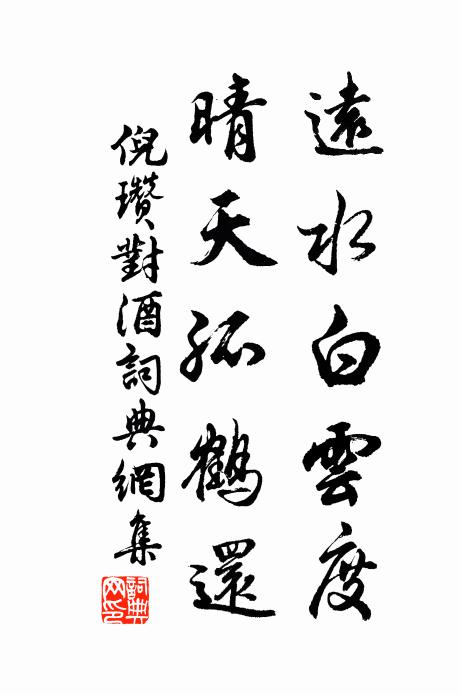 遠水白雲度
晴天孤鶴還
倪瓚對酒詞典網集
詞典網印